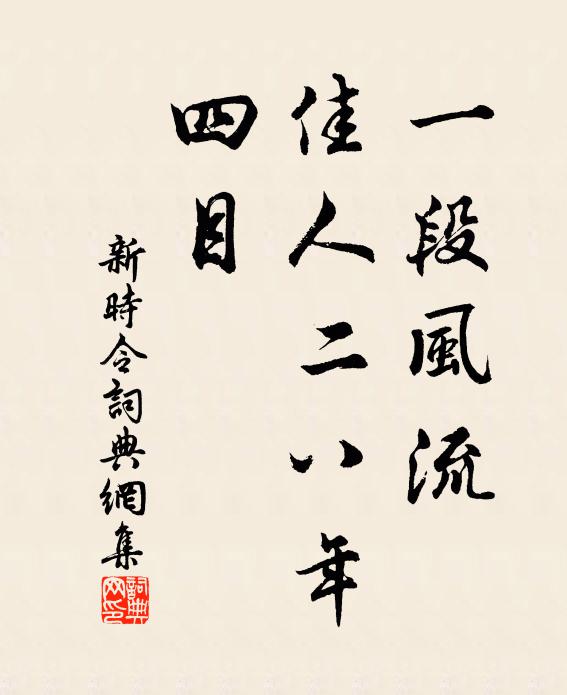 一段風流
佳人二八年
四目
新時令詞典網集
詞典
网印